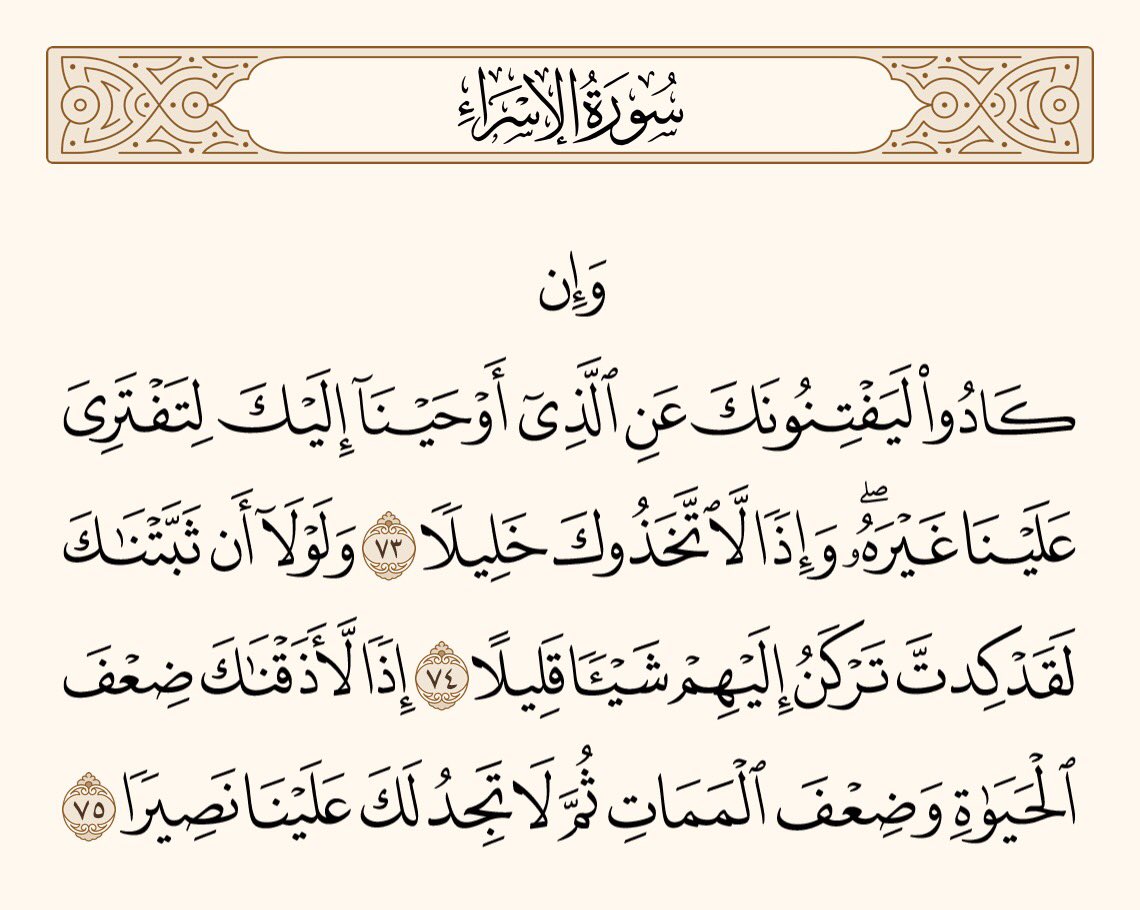 سُورَةُ الإِسْرَاءِ
وَإِن
كَادُوا۟ لَيَفْتِنُونَكَ عَنِ ٱلَّذِىٓ أَوْحَيْنَآ إِلَيْكَ لِتَفْتَرِىَ
عَلَيْنَا غَيْرَهُۥ ۖ وَإِذًا لَّٱتَّخَذُوكَ خَلِيلًا ٧٣ وَلَوْلَآ أَن ثَبَّتْنَـٰكَ
لَقَدْ كِدتَّ تَرْكَنُ إِلَيْهِمْ شَيْـًٔا قَلِيلًا ٧٤ إِذًا لَّأَذَقْنَـٰكَ ضِعْفَ
ٱلْحَيَوٰةِ وَضِعْفَ ٱلْمَمَاتِ ثُمَّ لَا تَجِدُ لَكَ عَلَيْنَا نَصِيرًا ٧٥